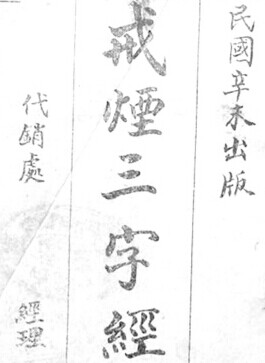 民國辛未出版
戒煙三字經
代銷處
經理